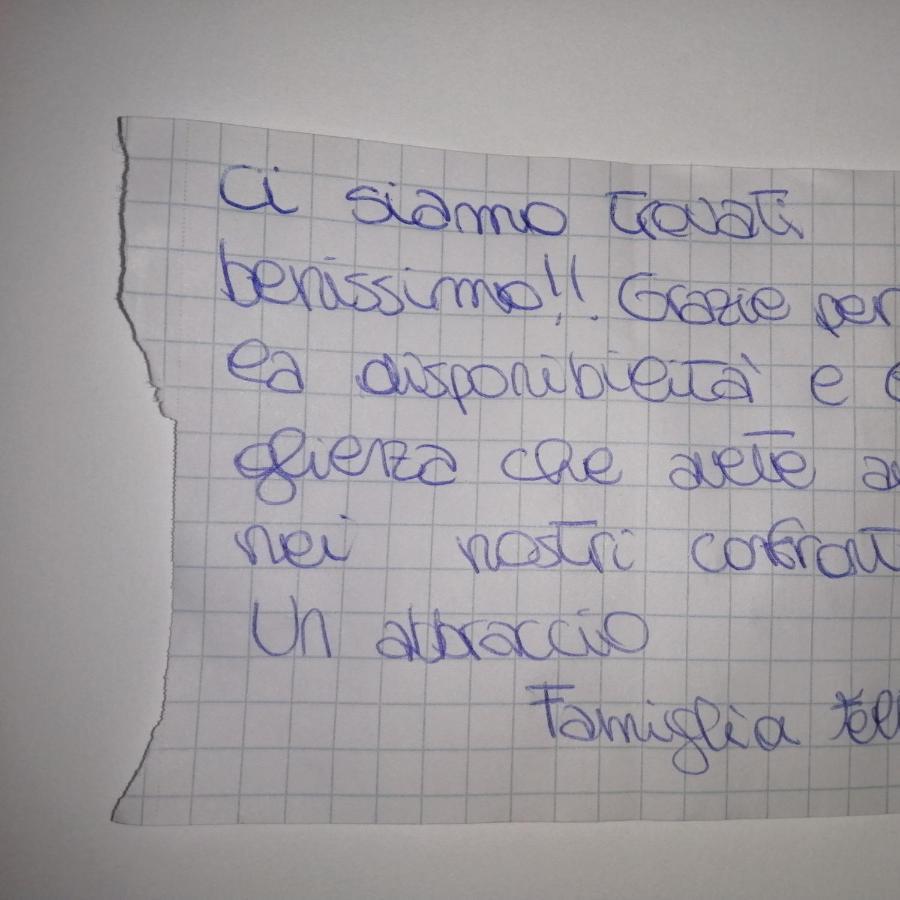 Ci siamo trovati
benissimo!! Grazie per
la disponibilità e
glienza che avete
nei nostri
Un abbraccio
Famiglia